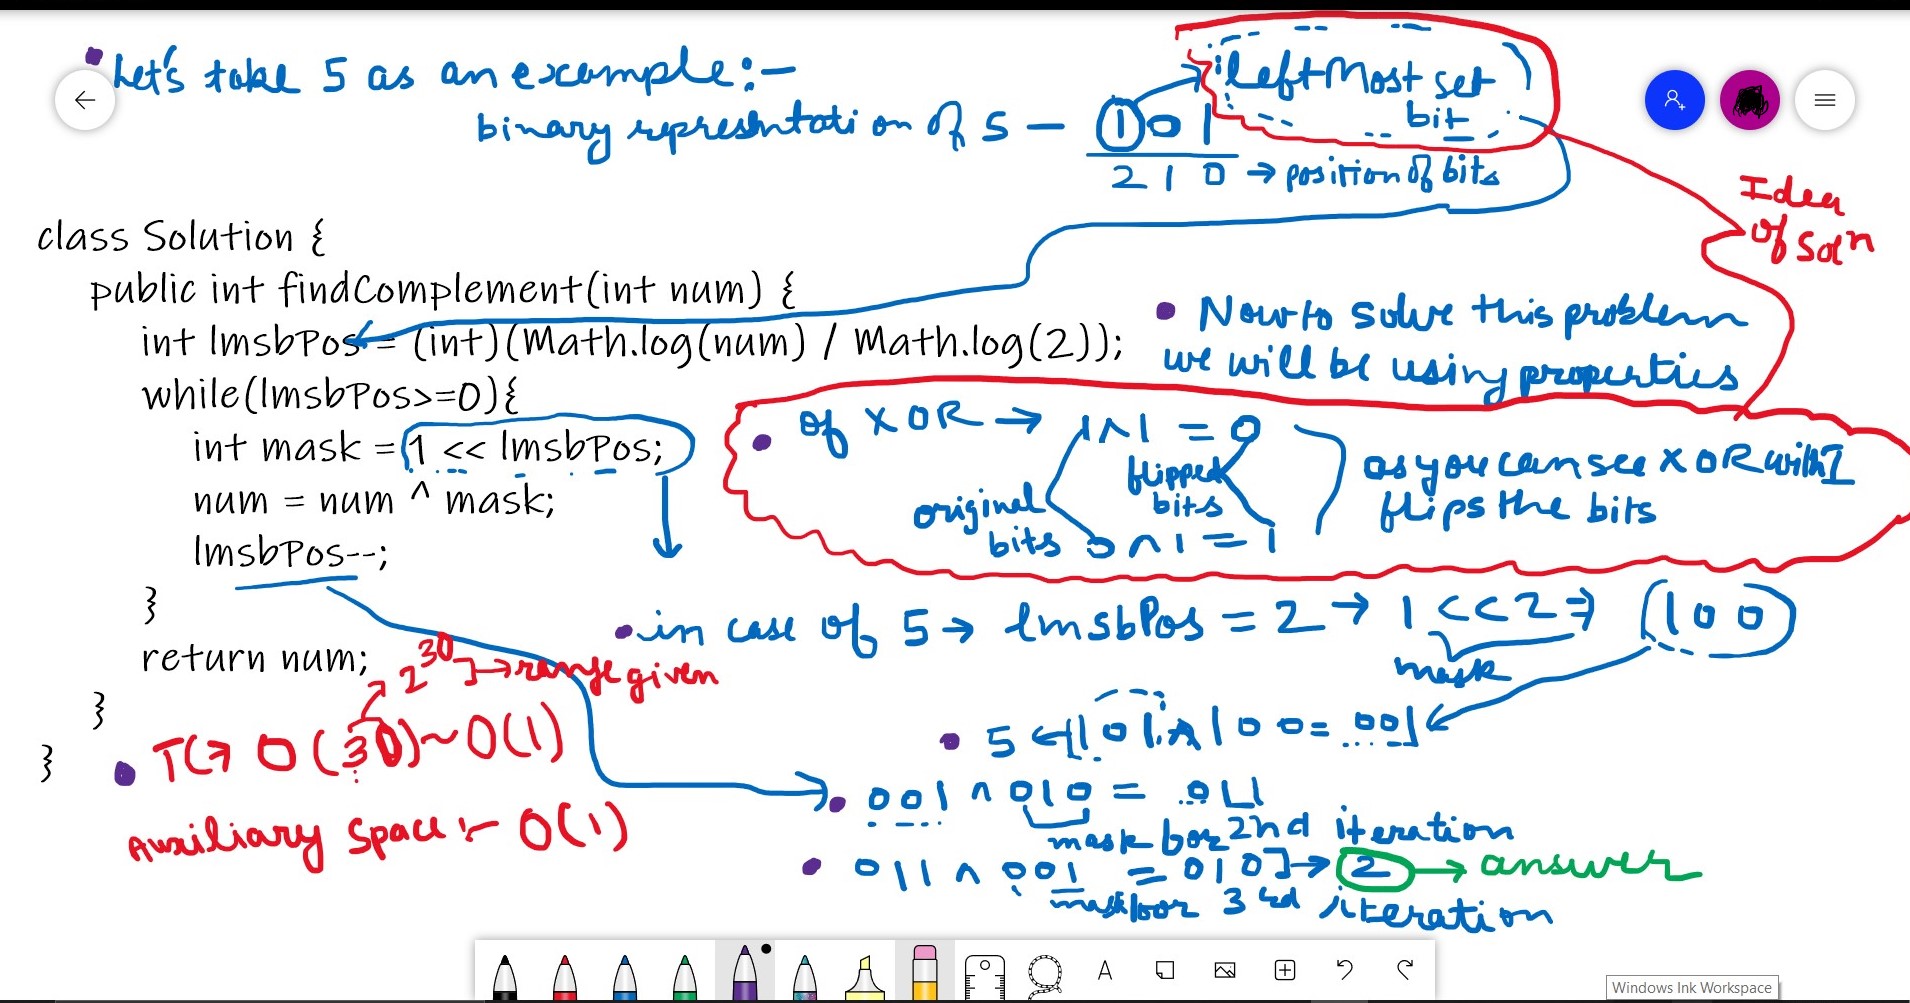 Let's take 5 as an example:-
binary representation of 5 - 101
leftMost set
bit
2 1 0 → position of bits
Idea
of Solⁿ
class Solution {
public int findComplement(int num) {
int lmsbPos = (int)(Math.log(num) / Math.log(2));
while(lmsbPos>=0){
int mask = 1 << lmsbPos;
num = num ^ mask;
lmsbPos--;
}
return num;
}
}
Now to solve this problem
we will be using properties
of XOR → 1 ^ 1 = 0
flipped
bits
original
bits 0 ^ 1 = 1
as you can see XOR with 1
flips the bits
in case of 5 → lmsbPos = 2 → 1 << 2 ⇒ (100)
mask
5 ← 101 ^ 100 = 001
001 ^ 010 = 011
mask for 2nd iteration
011 ^ 001 = 010] → 2 → answer
mask for 3rd iteration
2³⁰] → range given
TC → O(30) ~ O(1)
Auxiliary Space :- O(1)
A
Windows Ink Workspace